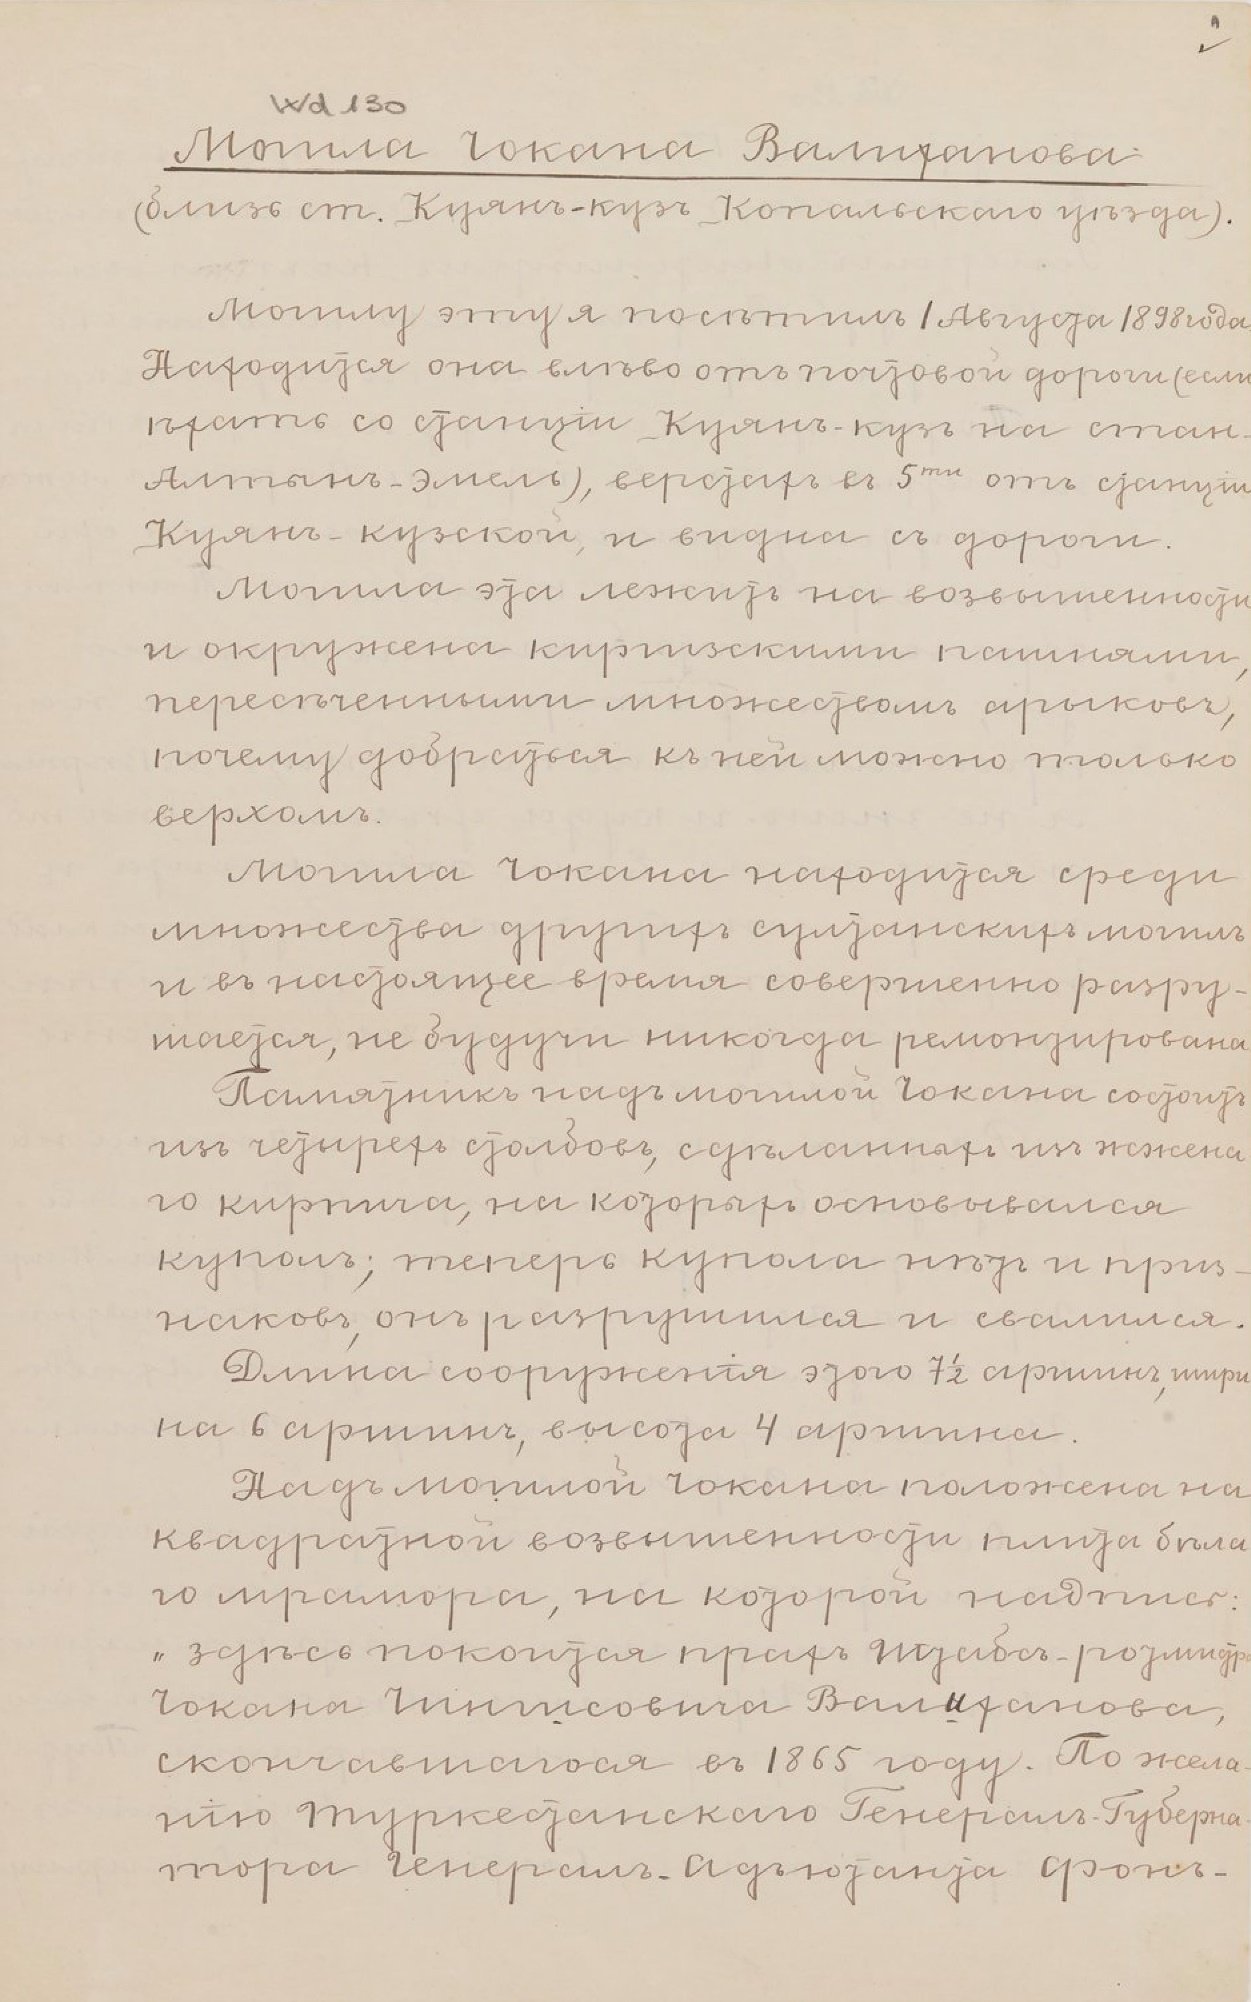 Wd 130
Могила Чокана Валиханова
(близь ст. Куянъ-кузъ Копальскаго уѣзда).
Могилу эту я посѣтилъ 1 Августа 1898 года
Находится она влѣво отъ почтовой дороги (если
ѣхать со станціи Куянъ-кузъ на стан-
Алтынъ-Эмель), верстахъ въ 5ти отъ станціи
Куянъ-кузской, и видна съ дороги.
Могила эта лежитъ на возвышенности
и окружена киргизскими пашнями,
пересѣченными множествомъ арыковъ,
почему добраться къ ней можно только
верхомъ.
Могила Чокана находится среди
множества другихъ султанскихъ могилъ
и въ настоящее время совершенно разру-
шается, не будучи никогда ремонтирована
Памятникъ надъ могилой Чокана состоитъ
изъ четырехъ столбовъ, сдѣланныхъ изъ жжена
го кирпича, на которыхъ основывался
куполъ; теперь купола нѣтъ и приз-
наковъ, онъ разрушился и свалился.
Длина сооруженія этого 7½ аршинъ, шири
на 6 аршинъ, высота 4 аршина.
Надъ могилой Чокана положена на
квадратной возвышенности плита бѣла
го мрамора, на которой надпись:
„здѣсь покоится прахъ Штабсъ-ротмистра
Чокана Чингисовича Валиханова,
скончавшагося въ 1865 году. По жела-
нію Туркестанскаго Генералъ-Губерна-
тора Генералъ-Адъютанта фонъ-